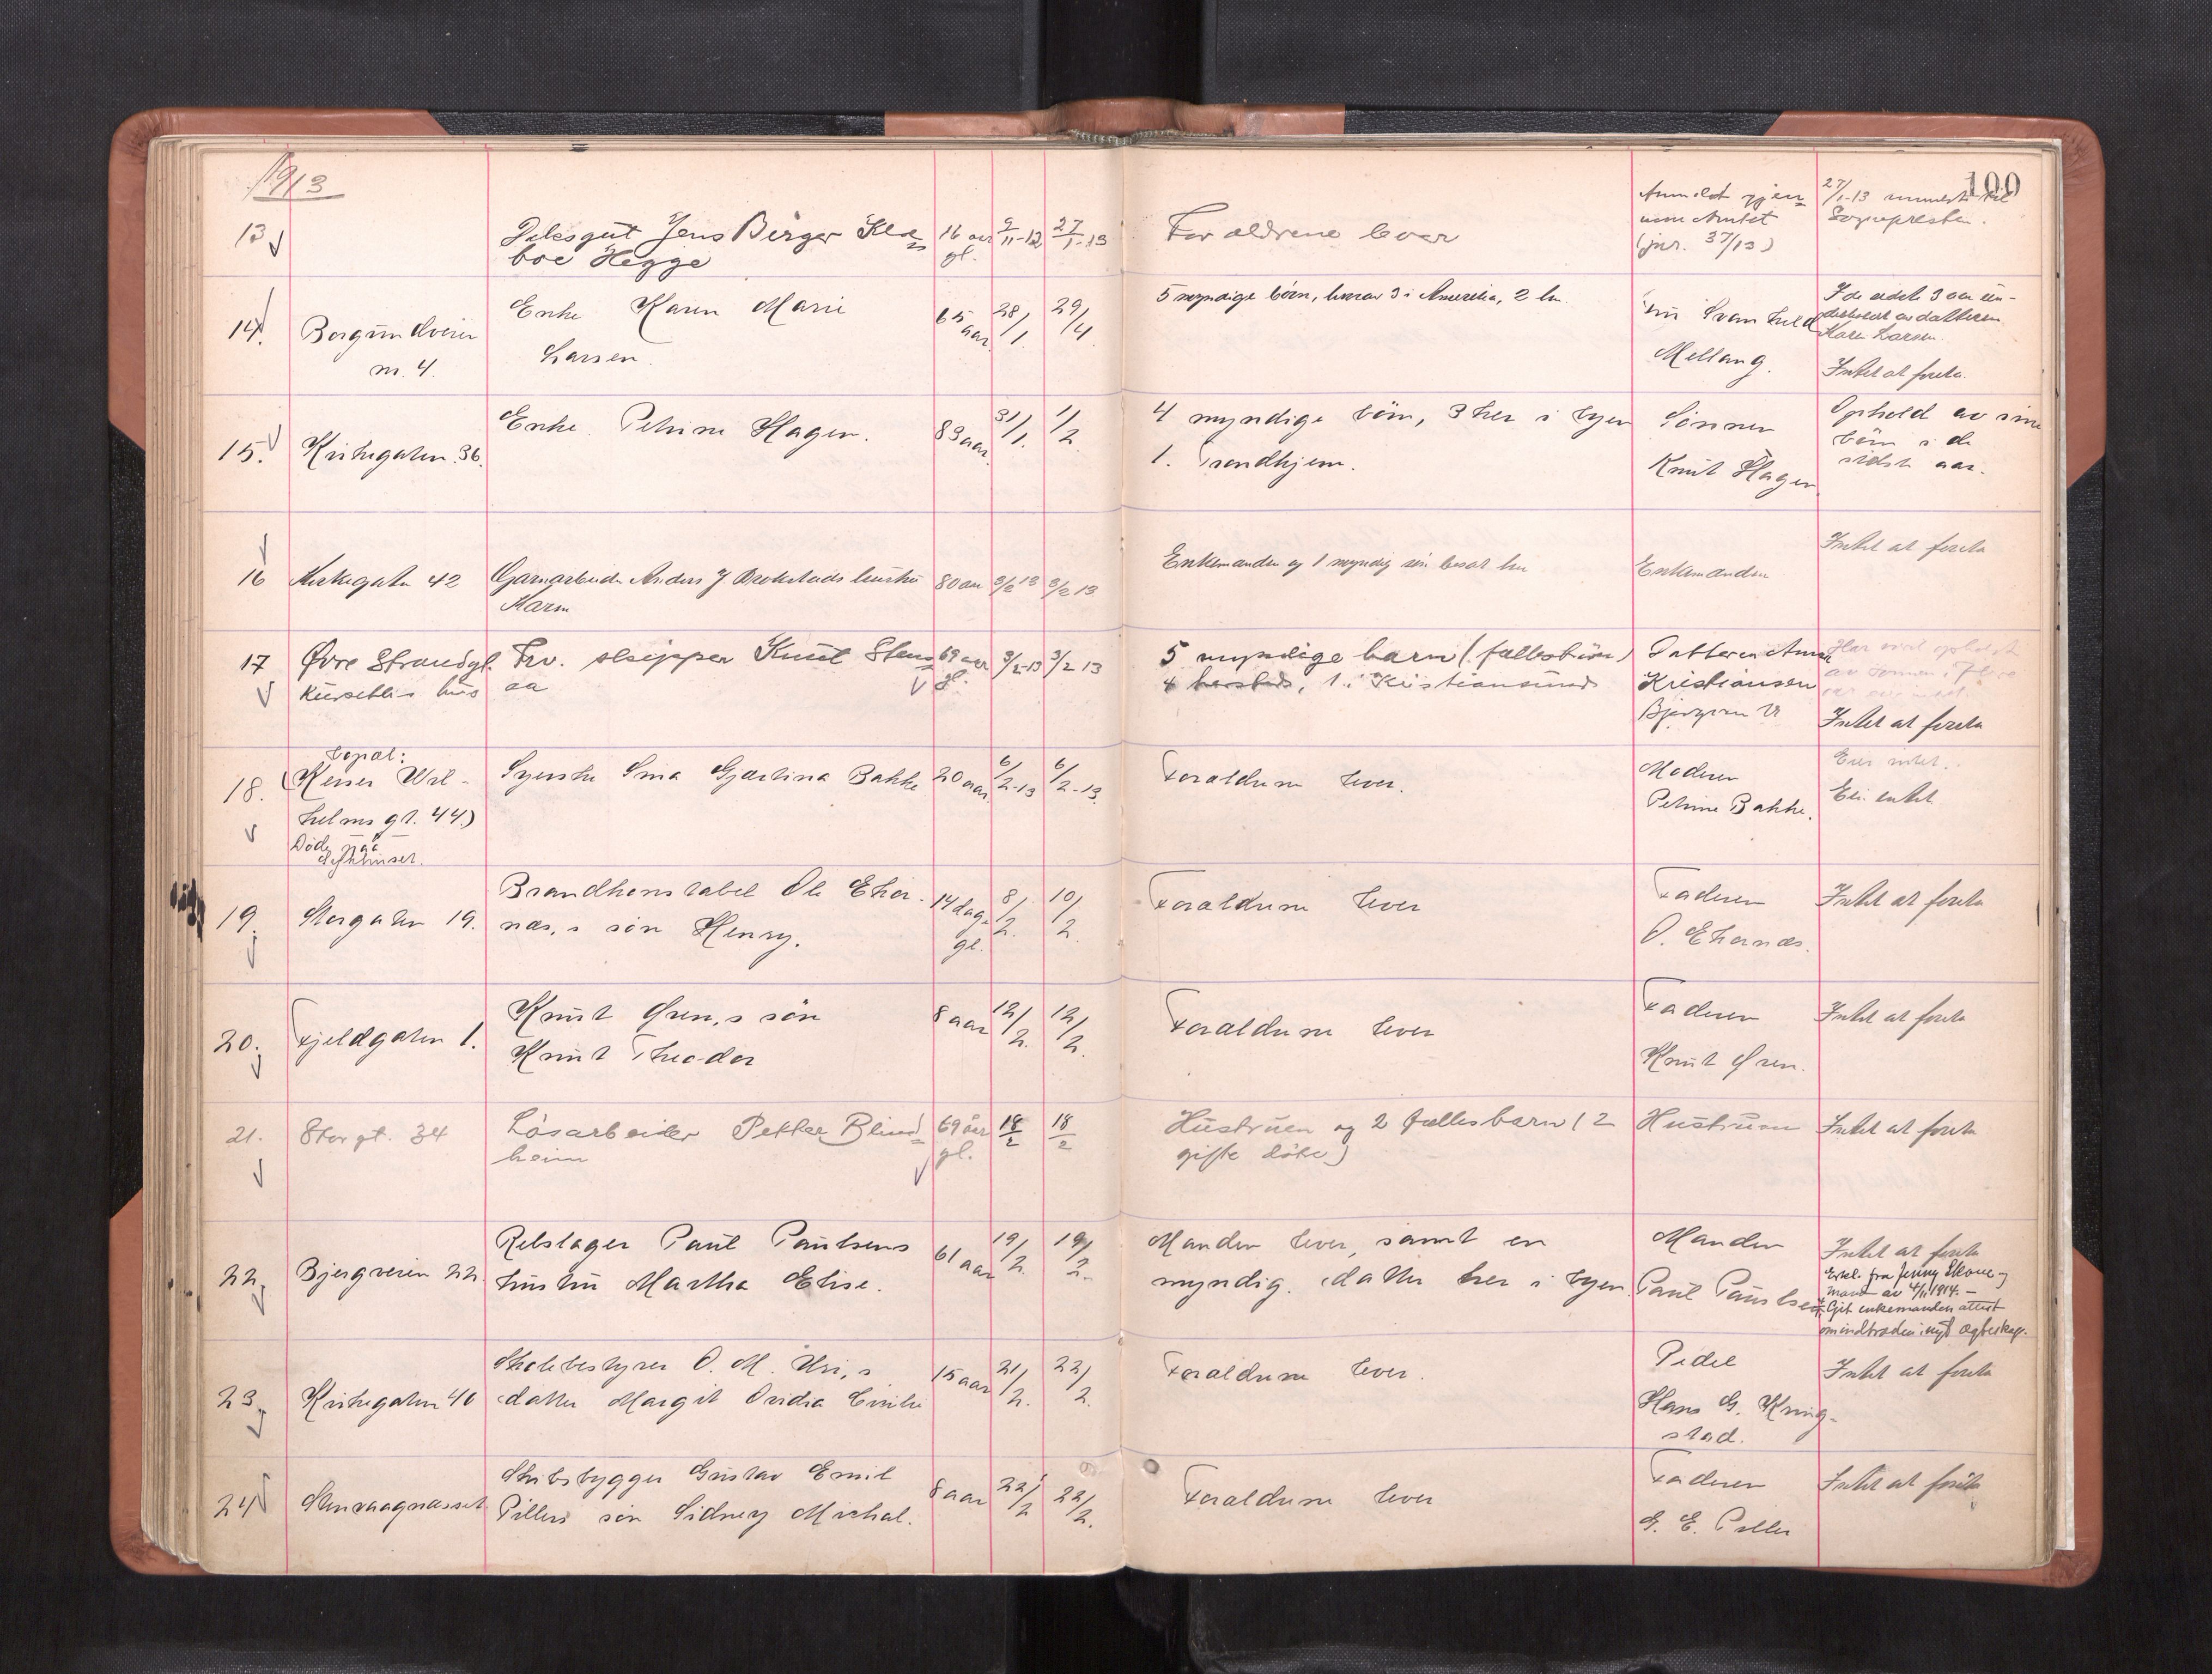 1913
100
13 Jens Birger Kla=
boe Hegge
16 aar
gl.
9/11-12 27/1-13
Forældrene lever
Anmeldt gjen=
nem Amtet
(jnr. 37/13)
27/1-13 anmeldt til
Sognepresten.
14. Borgundveien
nr. 4.
Enke Karen Marie
Larsen.
65
aar.
28/1. 29/4.
5 myndige børn, hvorav 3 i Amerika, 2 her.
Mellang.
I de sidste 3 aar un-
derholdt av datteren
Kara Larsen.
Intet at foreta.
15. Kirkegaten 36.
Enke Petrine Hagen.
83 aar.
31/1. 1/2.
4 myndige børn, 3 her i byen
1. Trondhjem.
Sønnen
Knut Hagen
Ophold av sine
børn i de
sidste aar.
16 Kirkegaten 42
Garnarbeider Anders J Brokstads hustru
Karen
80 aar 3/2 13 3/2 13
Enkemanden og 1 myndig søn bosat her
Enkemanden
Intet at foreta
17 Øvre Strandgt.
hus
Frv. skipper Knut Sten=
aa
69 aar
gl.
3/2-13 3/2 13
5 myndige barn (fællesbørn)
4 hersteds, 1 i Kristiansund
Datteren Anna
Kristiansen
Bjergvn 12
Intet at foreta
18. bopæl:
(Keiser Wil-
helms gt. 44.)
Døde paa
sykehuset.
Syerske Sina Gjertina Bakke
20 aar.
6/2-13 6/2-13.
Forældrene lever.
Moderen
Petrine Bakke.
Eier intet.
Eier intet
19. Storgaten 19.
Brandkonstabel Ole Ekor-
næs,s søn Henry.
14 dage
gl.
8/2. 10/2.
Forældrene lever
Faderen
O. Ekornæs.
Intet at foreta
20. Fjeldgaten 1.
Knut Øren,s søn
Knut Theodor
8 aar
12/2. 12/2.
Forældrene lever
Faderen
Knut Øren.
Intet at foreta
21. Storgt. 34
Løsarbeider Petter Blind=
heim
69 aar
gl.
18/2 18/2
Hustruen og 2 fællesbarn (2
gifte døtre)
Hustruen
Intet at foreta
22. Bjergveien 22.
Reslager Paul Paulsens
hustru Martha Elise.
61 aar
19/2. 19/2.
Manden lever, samt en
myndig datter her i byen.
Manden
Paul Paulsen
Intet at foreta
Erkl. fra Jenny Skoue og
mand av 4/11 1914. -
Git enkemanden attest
om indtræden i nyt ægteskap.
23. Kirkegaten 40
Skolebestyrer O. M. Uri,s
datter Margit Ovidia Emilie
15 aar
21/2. 22/2.
Forældrene lever.
Pedel
Hans G. Kring-
stad.
Intet at foreta
24 Stenvaagnæsset
Skibsbygger Gustav Emil
Pillers søn Sidney Michal.
8 aar
22/2 22/2.
Forældrene lever
Faderen
G. E. Piller
Intet at foreta